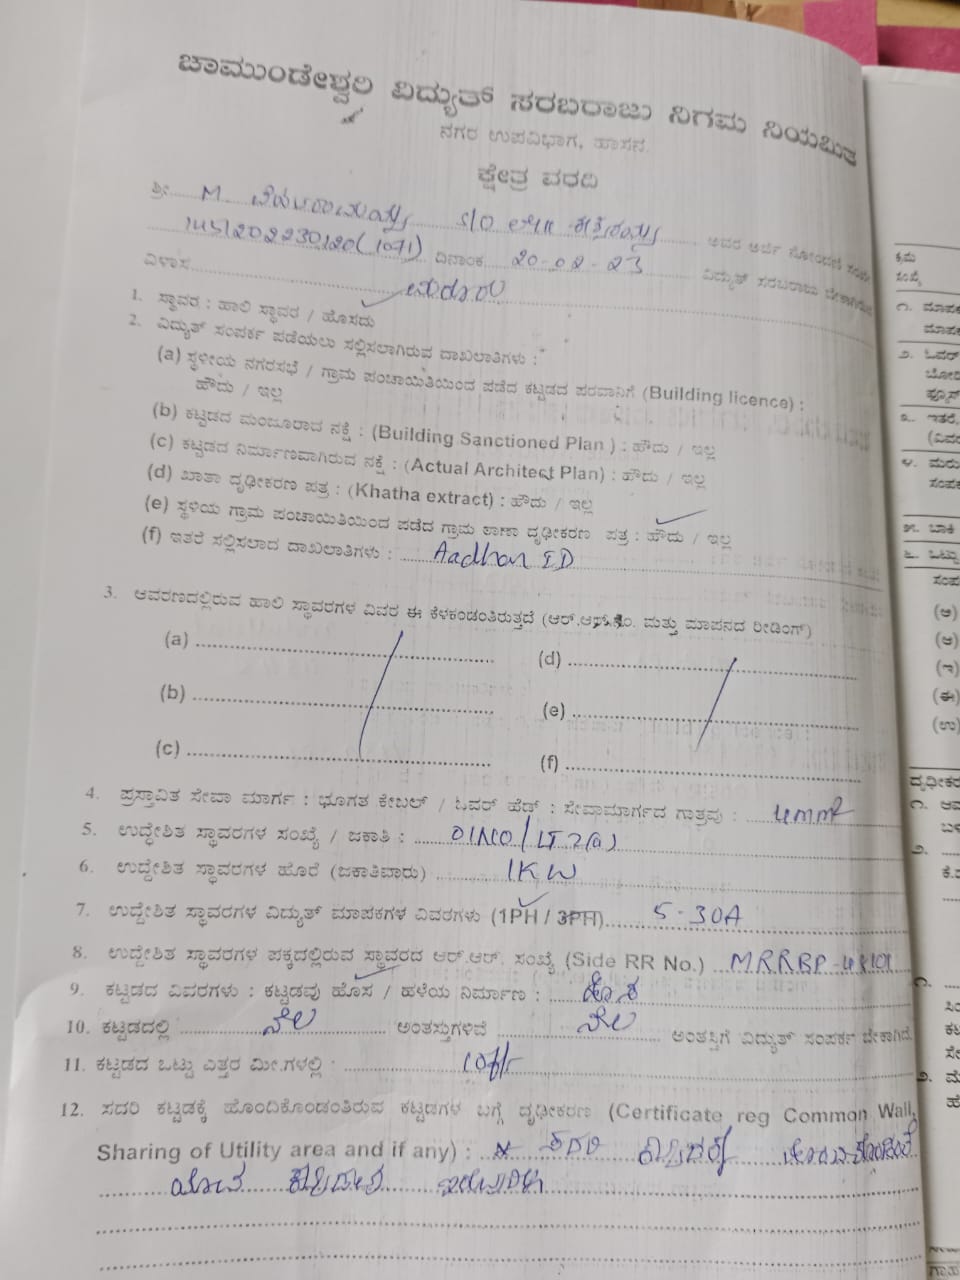 ಚಾಮುಂಡೇಶ್ವರಿ ವಿದ್ಯುತ್ ಸರಬರಾಜು ನಿಗಮ ನಿಯಮಿತ
ನಗರ ಉಪವಿಭಾಗ, ಹಾಸನ.
ಕ್ಷೇತ್ರ ವರದಿ
ಶ್ರೀ M. S/O ಅವರ ಅರ್ಜಿ ನೋಂದಣಿ ಸಂಖ್ಯೆ
145/202230120(1071) ದಿನಾಂಕ 20-02-23 ವಿದ್ಯುತ್ ಸರಬರಾಜು ಬೇಕಾಗಿರುವ
ವಿಳಾಸ
1. ಸ್ಥಾವರ : ಹಾಲಿ ಸ್ಥಾವರ / ಹೊಸದು
2. ವಿದ್ಯುತ್ ಸಂಪರ್ಕ ಪಡೆಯಲು ಸಲ್ಲಿಸಲಾಗಿರುವ ದಾಖಲಾತಿಗಳು :
(a) ಸ್ಥಳೀಯ ನಗರಸಭೆ / ಗ್ರಾಮ ಪಂಚಾಯಿತಿಯಿಂದ ಪಡೆದ ಕಟ್ಟಡದ ಪರವಾನಿಗೆ (Building licence) :
ಹೌದು / ಇಲ್ಲ
(b) ಕಟ್ಟಡದ ಮಂಜೂರಾದ ನಕ್ಷೆ : (Building Sanctioned Plan ) : ಹೌದು / ಇಲ್ಲ
(c) ಕಟ್ಟಡದ ನಿರ್ಮಾಣವಾಗಿರುವ ನಕ್ಷೆ : (Actual Architect Plan) : ಹೌದು / ಇಲ್ಲ
(d) ಖಾತಾ ದೃಢೀಕರಣ ಪತ್ರ : (Khatha extract) : ಹೌದು / ಇಲ್ಲ
(e) ಸ್ಥಳಿಯ ಗ್ರಾಮ ಪಂಚಾಯಿತಿಯಿಂದ ಪಡೆದ ಗ್ರಾಮ ಠಾಣಾ ದೃಢೀಕರಣ ಪತ್ರ : ಹೌದು / ಇಲ್ಲ
(f) ಇತರೆ ಸಲ್ಲಿಸಲಾದ ದಾಖಲಾತಿಗಳು : Aadhar ID
3. ಆವರಣದಲ್ಲಿರುವ ಹಾಲಿ ಸ್ಥಾವರಗಳ ವಿವರ ಈ ಕೆಳಕಂಡಂತಿರುತ್ತದೆ (ಆರ್.ಆರ್.ನಂ. ಮತ್ತು ಮಾಪನದ ರೀಡಿಂಗ್)
(a) (d)
(b) (e)
(c) (f)
4. ಪ್ರಸ್ತಾವಿತ ಸೇವಾ ಮಾರ್ಗ : ಭೂಗತ ಕೇಬಲ್ / ಓವರ್ ಹೆಡ್ : ಸೇವಾಮಾರ್ಗದ ಗಾತ್ರವು : 4mm²
5. ಉದ್ಧೇಶಿತ ಸ್ಥಾವರಗಳ ಸಂಖ್ಯೆ / ಜಕಾತಿ : 01NO/LT2(a)
6. ಉದ್ದೇಶಿತ ಸ್ಥಾವರಗಳ ಹೊರೆ (ಜಕಾತಿವಾರು) 1KW
7. ಉದ್ದೇಶಿತ ಸ್ಥಾವರಗಳ ವಿದ್ಯುತ್ ಮಾಪಕಗಳ ವಿವರಗಳು (1PH / 3PH) 5-30A
8. ಉದ್ದೇಶಿತ ಸ್ಥಾವರಗಳ ಪಕ್ಕದಲ್ಲಿರುವ ಸ್ಥಾವರದ ಆರ್.ಆರ್. ಸಂಖ್ಯೆ (Side RR No.)
9. ಕಟ್ಟಡದ ವಿವರಗಳು : ಕಟ್ಟಡವು ಹೊಸ / ಹಳೆಯ ನಿರ್ಮಾಣ : ಹೊಸ
10. ಕಟ್ಟಡದಲ್ಲಿ ನೆಲ ಅಂತಸ್ತುಗಳಿವೆ ನೆಲ ಅಂತಸ್ತಿಗೆ ವಿದ್ಯುತ್ ಸಂಪರ್ಕ ಬೇಕಾಗಿದೆ.
11. ಕಟ್ಟಡದ ಒಟ್ಟು ಎತ್ತರ ಮೀ.ಗಳಲ್ಲಿ :
12. ಸದರಿ ಕಟ್ಟಡಕ್ಕೆ ಹೊಂದಿಕೊಂಡಂತಿರುವ ಕಟ್ಟಡಗಳ ಬಗ್ಗೆ ದೃಢೀಕರಣ (Certificate reg Common Wall,
Sharing of Utility area and if any) : ಸದರಿ
ಕ್ರಮ
ಸಂಖ್ಯೆ